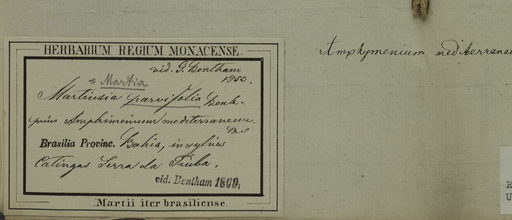 HERBARIUM REGIUM MONACENSE.
vid. G. Bentham
1850.
= Martia
Martiusia parvifolia Benth.
prius Amphimenium mediterraneum
Brasilia Provinc. Bahia, in sylvis
Catingas Serra da Tiuba.
vid. Bentham 1860.
Martii iter brasiliense.
Amphymenium mediterraneu
R
U